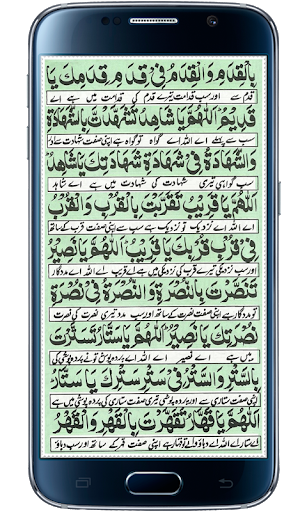 بِالْقِدَمِ وَالْقِدَمُ فِيْ قِدَمِ قِدَمِكَ يَا
قدم سے اور سب قدامت تیرے قدم کی قدامت میں ہے اے
قَدِيْمُ اَللّٰهُمَّ يَا شَاهِدُ تَشَهَّدْتَ بِالشَّهَادَةِ
سب سے پہلے اے اللہ اے گواہ تو گواہ ہے اپنی صفت شہادت سے اور
وَالشَّهَادَةُ فِيْ شَهَادَةِ شَهَادَتِكَ يَا شَاهِدُ
سب گواہی تیری شہادت کی شہادت میں ہے اے شاہد
اَللّٰهُمَّ يَا قَرِيْبُ تَقَرَّبْتَ بِالْقُرْبِ وَالْقُرْبُ
اے اللہ اے نزدیک تو نزدیک ہے اپنی صفت قرب کے ساتھ
فِيْ قُرْبِ قُرْبِكَ يَا قَرِيْبُ اَللّٰهُمَّ يَا نَصِيْرُ
اور سب نزدیکی تیرے قرب کی نزدیکی میں ہے اے قریب اے اللہ اے مددگار
تَنَصَّرْتَ بِالنُّصْرَةِ وَالنُّصْرَةُ فِيْ نُصْرَةِ
تو مددگار ہے اپنی صفت نصرت کے ساتھ اور سب مدد تیری نصرت کی نصرت
نُصْرَتِكَ يَا نَصِيْرُ اَللّٰهُمَّ يَا سَتَّارُ تَسَتَّرْتَ
میں ہے اے نصیر اے اللہ اے پردہ پوش تو نے پردہ پوشی کی
بِالسِّتْرِ وَالسِّتْرُ فِيْ سِتْرِ سِتْرِكَ يَا سَتَّارُ
اپنی صفت ستاری سے اور سب پردہ پوشی تیری صفت ستاری کی پردہ پوشی میں ہے
اَللّٰهُمَّ يَا قَهَّارُ تَقَهَّرْتَ بِالْقَهْرِ وَالْقَهْرُ
اے ستار اے اللہ اے دباؤ والے تو قہار ہے اپنی صفت قہر کے ساتھ اور سب دباؤ